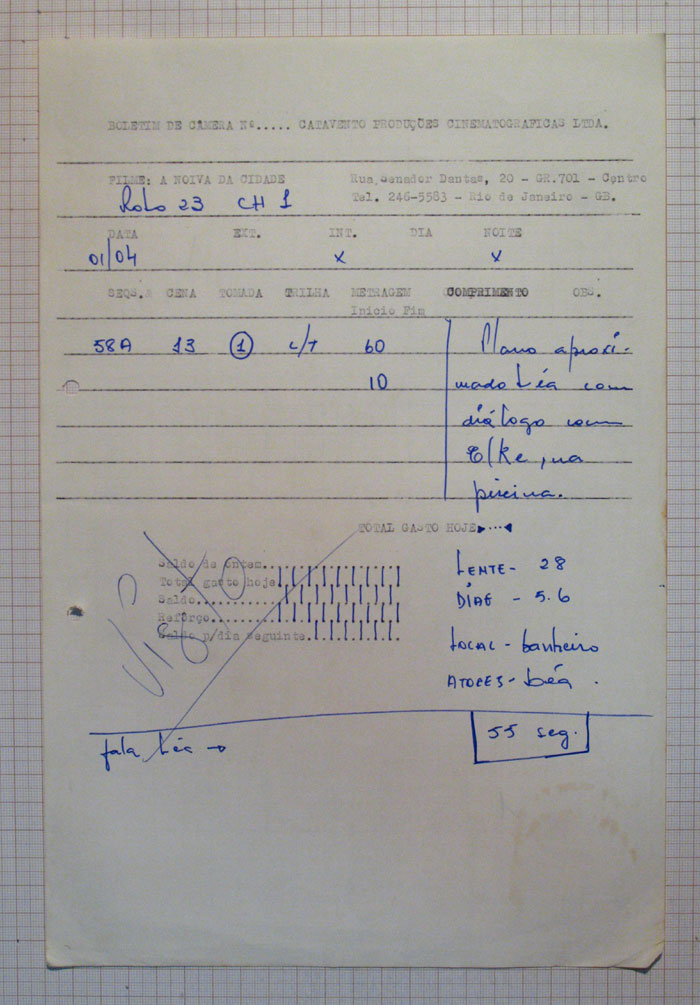 BOLETIM DE CÂMERA Nº..... CATAVENTO PRODUÇÕES CINEMATOGRAFICAS LTDA.
FILME: A NOIVA DA CIDADE
Rua Senador Dantas, 20 - GR.701 - Centro
Rolo 23 CH 1
Tel. 246-5583 - Rio de Janeiro - GB.
DATA EXT. INT. DIA NOITE
01/04 x x
SEQS. CENA TOMADA TRILHA METRAGEM COMPRIMENTO OBS.
Inicio Fim
58A 13 1 c/T 60
10
Plano aproxi-
mado Léa com
diálogo com
Elke, na
piscina.
TOTAL GASTO HOJE
Saldo de ontem
Total gasto hoje
Saldo
Refôrço
Saldo p/dia seguinte
Visto
LENTE - 28
DIAF - 5.6
LOCAL - banheiro
ATORES - Léa.
fala Léa →
55 seg.